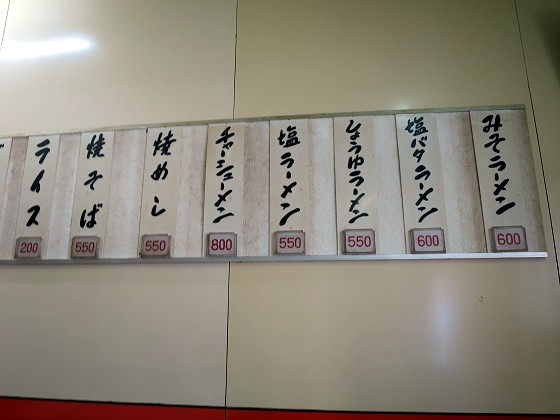 みそラーメン
600
塩バタラーメン
600
しょうゆラーメン
550
塩ラーメン
550
チャーシューメン
800
焼めし
550
焼そば
550
ライス
200